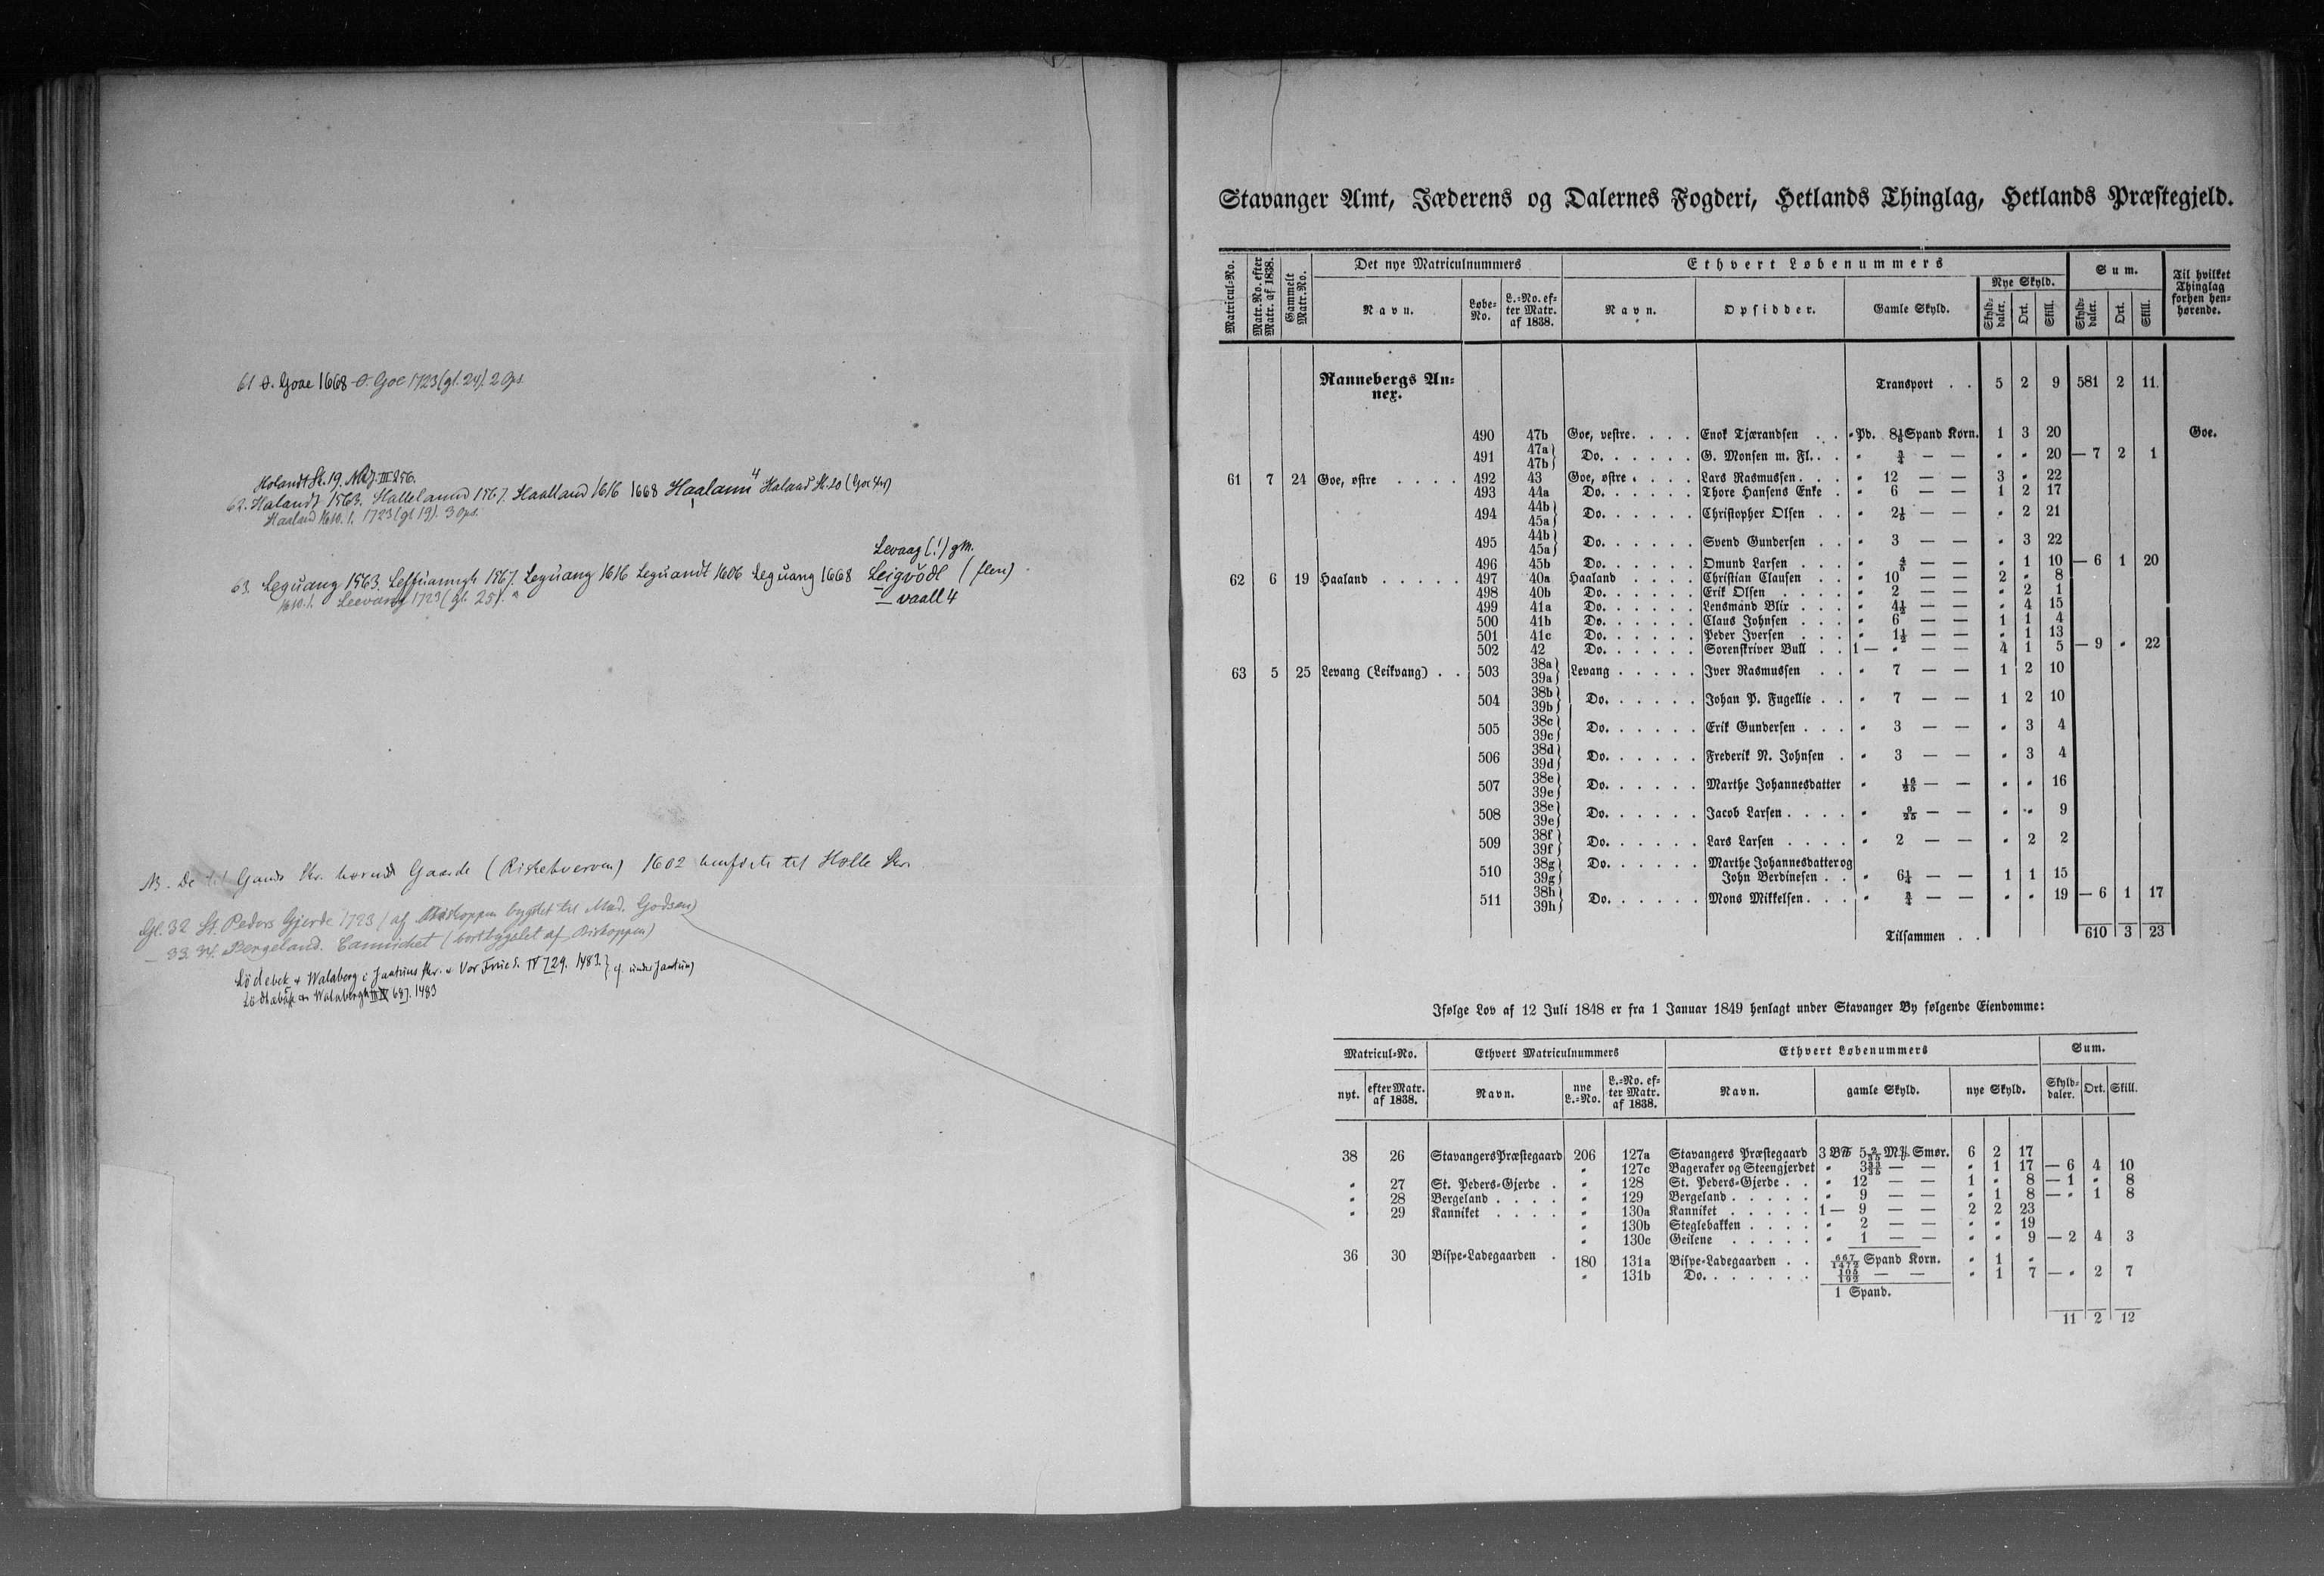 61 Ø. Goae 1668 Ø. Goe 1723 (gl. 24). 2 Ops.
Holandt St. 19. NRJ. III 256.
62. Halandt 1563. Hallelannd 1567. Haalland 1616 1668 Haalann 4 Haland St. 20 (Goe Skr)
Haaland 1610. 1. 1723 (gl 19). 3 Ops.
Levaag (!) gm.
63. Leguang 1563. Leffuanngh 1567. Leguang 1616 Leguandt 1606 Leguang 1668 Leigvödl (flen)
1610. 1. Leevang 1723 (gl. 25).
— vaall 4
NB. De til Gands Skr. hørende Gaarde (Riskekverven) 1602 henførte til Holle Skr.
Gl. 32 St. Peders Gjerde 1723 (af Biskoppen bygslet til Mad. Godsen)
— 33. 34. Bergeland. Cannicket (bortbygslet af Biskoppen)
Lödebek & Walaberg i Jaatuns skr. & Vor Frue S. IV 729. 1483. } cf. under Jaatun)
Lödhabäk Walabergh IV 687. 1483
Stavanger Amt, Jæderens og Dalernes Fogderi, Hetlands Thinglag, Hetlands Præstegjeld.
Matricul-No. Matr.No. efter Matr. af 1838. Gammelt Matr.No. Det nye Matriculnummers Ethvert Løbenummers Sum. Til hvilket Thinglag forhen henhørende.
Navn. Løbe-No. L.-No. efter Matr. af 1838. Navn. Opsidder. Gamle Skyld. Nye Skyld. Skylddaler. Ort. Skill. Skylddaler. Ort. Skill.
Rannebergs Annex. Transport . . 5 2 9 581 2 11.
490 47b Goe, vestre. . . . Enok Tjærandsen . . " Pd. 8⅕ Spand Korn. 1 3 20 Goe.
491 47a 47b} Do. . . . . . G. Monsen m. Fl. . . " ¾ — — " " 20 — 7 2 1
61 7 24 Goe, østre . . . . 492 43 Goe, østre . . . . Lars Rasmussen. . . " 12 — — 3 " 22
493 44a Do. . . . . . Thore Hansens Enke . " 6 — — 1 2 17
494 44b 45a} Do. . . . . . Christopher Olsen . . " 2⅕ — — " 2 21
495 44b 45a} Do. . . . . . Svend Gundersen . . " 3 — — " 3 22
496 45b Do. . . . . . Omund Larsen . . . " ⅘ — — " 1 10 — 6 1 20
62 6 19 Haaland . . . . . 497 40a Haaland . . . . Christian Clausen . . " 10 — — 2 " 8
498 40b Do. . . . . . Erik Olsen . . . . " 2 — — " 2 1
499 41a Do. . . . . . Lensmand Blix . . . " 4½ — — " 4 15
500 41b Do. . . . . . Claus Johnsen . . . " 6 — — 1 1 4
501 41c Do. . . . . . Peder Iversen . . . " 1½ — — " 1 13
502 42 Do. . . . . . Sorenskriver Bull . . 1 — " — — 4 1 5 — 9 " 22
63 5 25 Levang (Leikvang) . . 503 38a 39a} Levang . . . . . Iver Rasmussen . . " 7 — — 1 2 10
504 38b 39b} Do. . . . . . Johan P. Fugellie . . " 7 — — 1 2 10
505 38c 39c} Do. . . . . . Erik Gundersen . . . " 3 — — " 3 4
506 38d 39d} Do. . . . . . Frederik N. Johnsen . " 3 — — " 3 4
507 38e 39e} Do. . . . . . Marthe Johannesdatter " 16/25 — — " " 16
508 38e 39e} Do. . . . . . Jacob Larsen . . . . " 9/25 — — " " 9
509 38f 39f} Do. . . . . . Lars Larsen . . . . " 2 — — " 2 2
510 38g 39g} Do. . . . . . Marthe Johannesdatter og
John Berdinesen . . " 6¼ — — 1 1 15
511 38h 39h} Do. . . . . . Mons Mikkelsen. . . " ¾ — — " " 19 — 6 1 17
Tilsammen . . 610 3 23
Ifølge Lov af 12 Juli 1848 er fra 1 Januar 1849 henlagt under Stavanger By følgende Eiendomme:
Matricul-No. Ethvert Matriculnummers Ethvert Løbenummers Sum.
nyt. efter Matr. af 1838. Navn. nye L.-No. L.-No. efter Matr. af 1838. Navn. gamle Skyld. nye Skyld. Skylddaler. Ort. Skill.
38 26 Stavangers Præstegaard 206 127a Stavangers Præstegaard 3 B℔ 5 2/35 M℔ Smør. 6 2 17
" 127c Bageraker og Steengjerdet " 3 33/35 — — " 1 17 — 6 4 10
" 27 St. Peders-Gjerde . " 128 St. Peders-Gjerde . . " 12 — — 1 " 8 — 1 " 8
" 28 Bergeland . . . . " 129 Bergeland . . . . . " 9 — — " 1 8 — " 1 8
" 29 Kanniket . . . . " 130a Kanniket . . . . . 1 — 9 — — 2 2 23
" 130b Steglebakken . . . . " 2 — — " " 19
" 130c Geilene . . . . . " 1 — — " " 9 — 2 4 3
36 30 Bispe-Ladegaarden . 180 131a Bispe-Ladegaarden . . 667/1472 Spand Korn. " 1 "
" 131b Do. . . . . . . 105/192 — — " 1 7 — " 2 7
1 Spand.
11 2 12